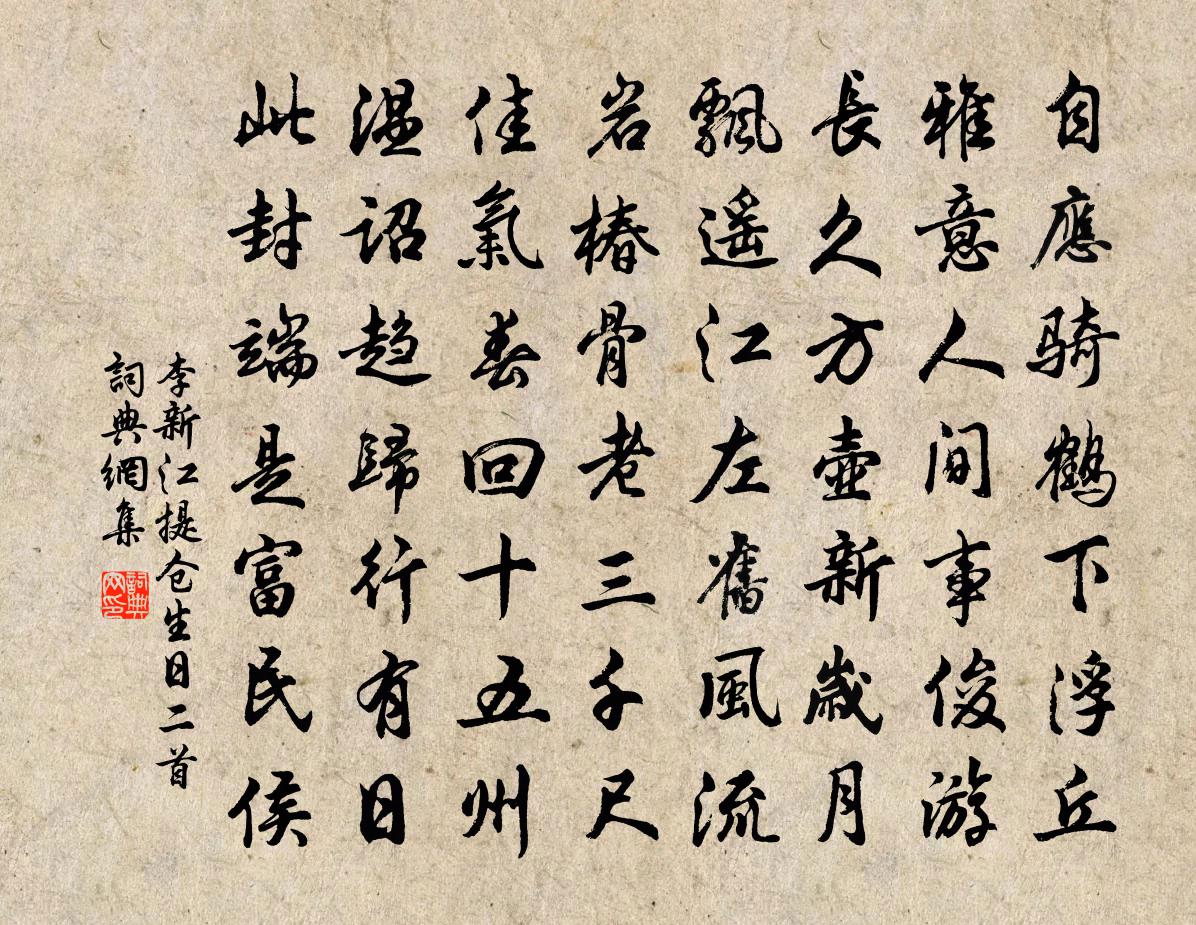 自應騎鶴下浮丘
雅意人間事俊游
長久方壺新歲月
飄遥江左舊風流
岩椿骨老三千尺
佳氣春回十五州
温詔趋歸行有日
此封端是富民侯
李新江提仓生日二首
詞典網集
詞典网印